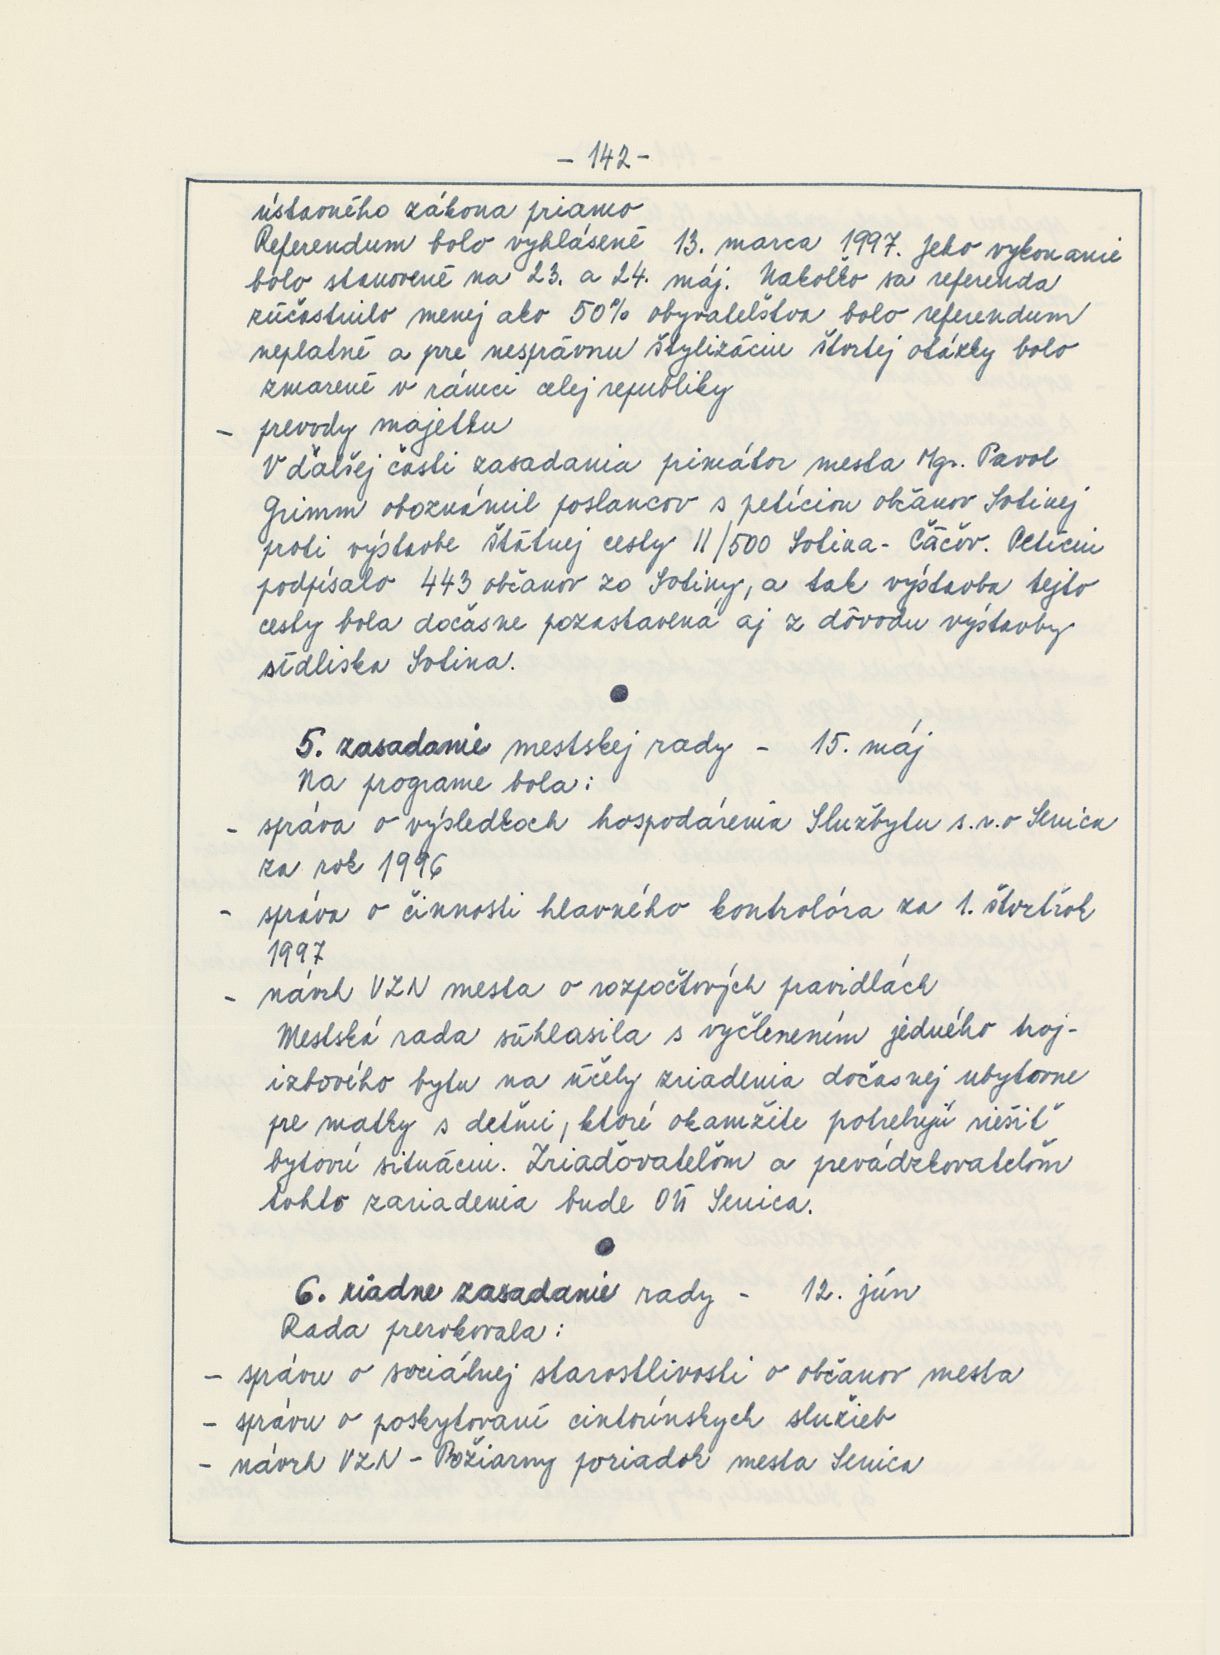 - 142 -
ústavného zákona priamo
Referendum bolo vyhlásené 13. marca 1997. Jeho vykonanie
bolo stanovené na 23. a 24. máj. Nakoľko sa referenda
zúčastnilo menej ako 50% obyvateľstva bolo referendum
neplatné a pre nesprávnu štylizáciu štvrtej otázky bolo
zmarené v rámci celej republiky
- prevody majetku
V ďalšej časti zasadania primátor mesta Mgr. Pavol
Grimm oboznámil poslancov s petíciou občanov Sotinej
proti výstavbe štátnej cesty II/500 Sotina - Čáčov. Petíciu
podpísalo 443 občanov zo Sotiny, a tak výstavba tejto
cesty bola dočasne pozastavená aj z dôvodu výstavby
sídliska Sotina.
5. zasadanie mestskej rady - 15. máj
Na programe bola:
- správa o výsledkoch hospodárenia Službytu s.r.o Senica
za rok 1996
- správa o činnosti hlavného kontrolóra za 1. štvrťrok
1997
- návrh VZN mesta o rozpočtových pravidlách
Mestská rada súhlasila s vyčlenením jedného troj-
izbového bytu na účely zriadenia dočasnej ubytovne
pre matky s deťmi, ktoré okamžite potrebujú riešiť
bytovú situáciu. Zriaďovateľom a prevádzkovateľom
tohto zariadenia bude OÚ Senica.
6. riadne zasadanie rady - 12. jún
Rada prerokovala:
- správu o sociálnej starostlivosti o občanov mesta
- správu o poskytovaní cintorínskych služieb
- návrh VZN - Požiarny poriadok mesta Senica